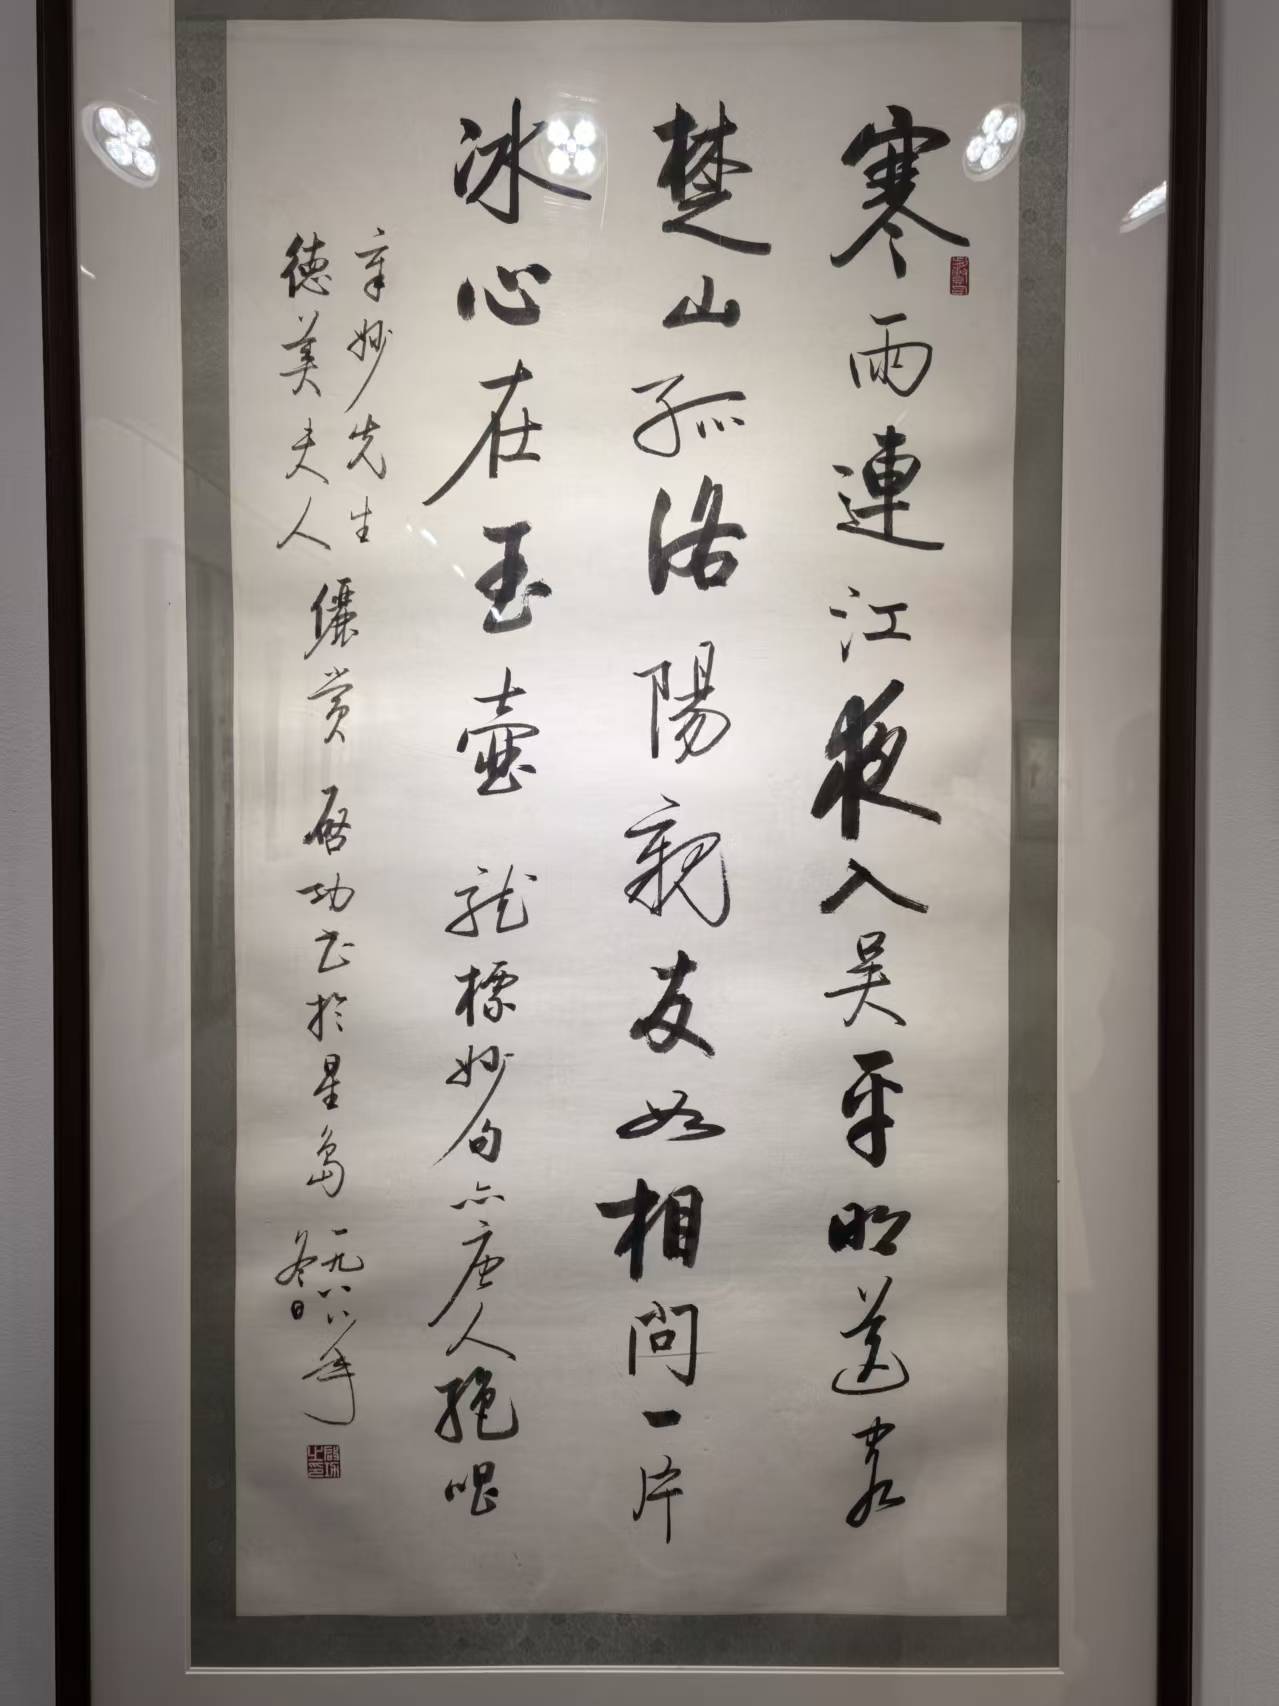 寒雨連江夜入吴平明送客
楚山孤洛陽親友如相問一片
冰心在玉壺 龙標妙句亦唐人絕唱
辛妙先生
德美夫人
儷賞 启功书於星島 一九八八年
冬日